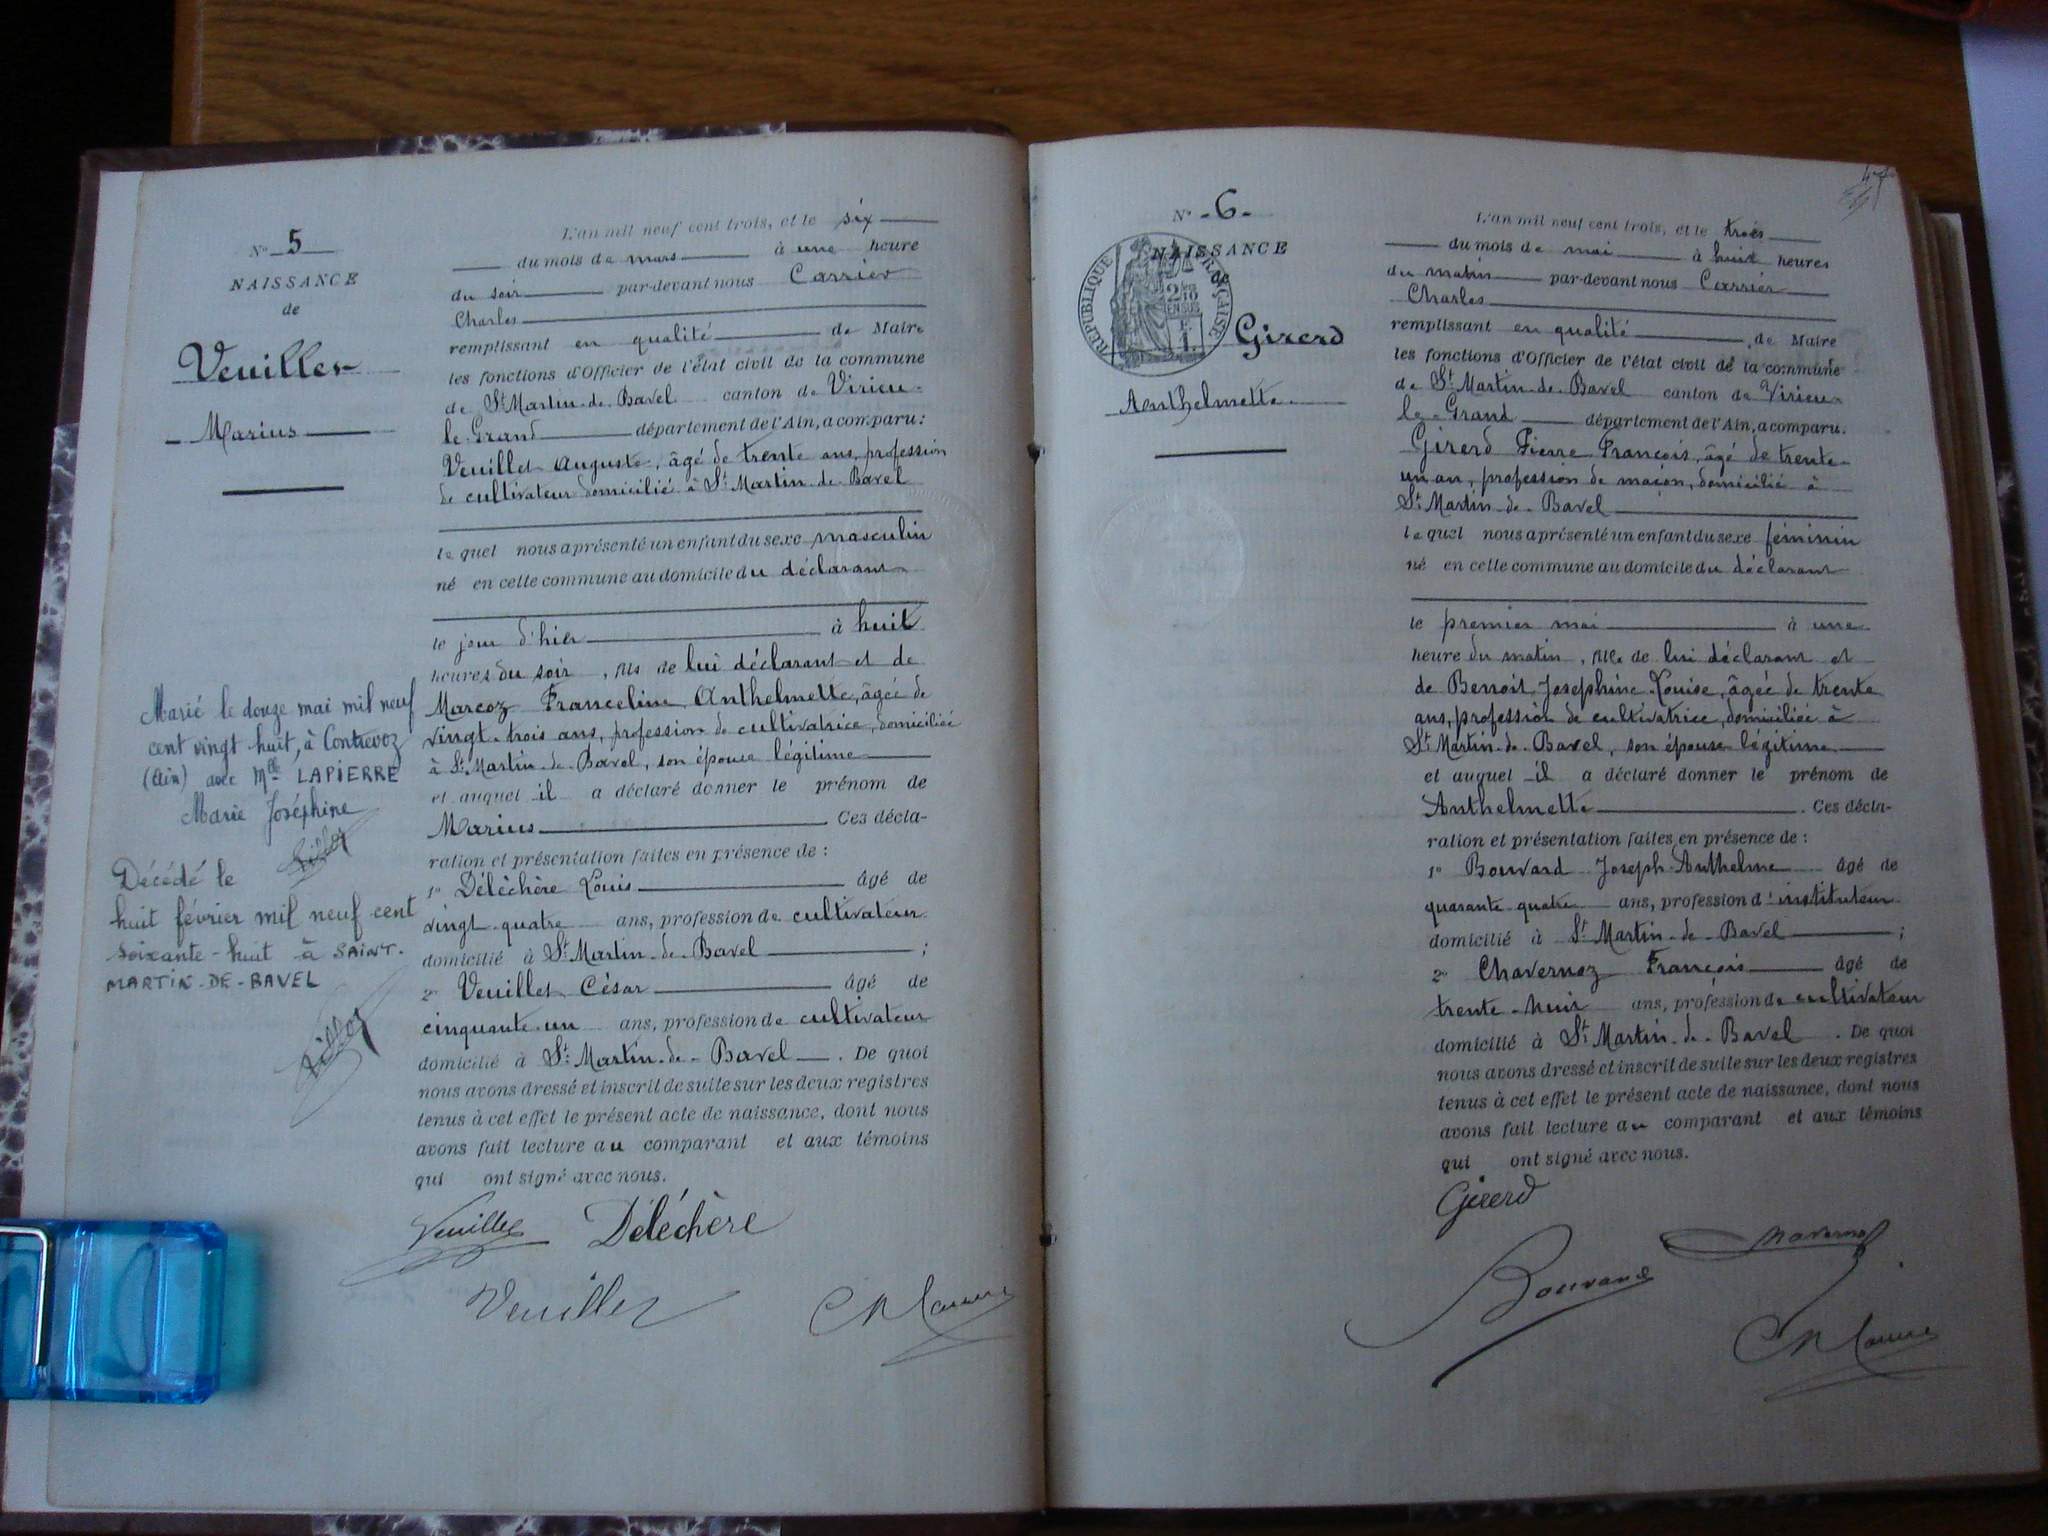 N° 5
NAISSANCE
de
Veuillet
Marius
Marié le douze mai mil neuf
cent vingt huit, à Contrevoz
(Ain) avec Mlle LAPIERRE
Marie Joséphine
Décédé le
huit février mil neuf cent
soixante-huit à SAINT.
MARTIN-DE-BAVEL
L'an mil neuf cent trois, et le six
du mois de mars à une heure
du soir par-devant nous Carrier
Charles
remplissant en qualité de Maire
les fonctions d'Officier de l'état civil de la commune
de St Martin-de-Bavel canton de Virieu-
le-Grand département de l'Ain, a comparu:
Veuillet Auguste, âgé de trente ans, profession
de cultivateur domicilié à St Martin-de-Bavel
lequel nous a présenté un enfant du sexe masculin
né en cette commune au domicile du déclarant
le jour d'hier à huit
heures du soir, fils de lui déclarant et de
Marcoz Franceline Anthelmette, âgée de
vingt-trois ans, profession de cultivatrice, domiciliée
à St Martin-de-Bavel, son épouse légitime
et auquel il a déclaré donner le prénom de
Marius Ces décla-
ration et présentation faites en présence de :
1° Déléchère Louis âgé de
vingt-quatre ans, profession de cultivateur
domicilié à St Martin-de-Bavel ;
2° Veuillet César âgé de
cinquante-un ans, profession de cultivateur
domicilié à St Martin-de-Bavel . De quoi
nous avons dressé et inscrit de suite sur les deux registres
tenus à cet effet le présent acte de naissance, dont nous
avons fait lecture au comparant et aux témoins
qui ont signé avec nous.
Veuillet Déléchère
Veuillet
N° -6-
NAISSANCE
RÉPUBLIQUE FRANÇAISE
2/10 EN SUS
Girerd
Anthelmette
L'an mil neuf cent trois, et le trois
du mois de mai à huit heures
du matin par-devant nous Carrier
Charles
remplissant en qualité de Maire
les fonctions d'Officier de l'état civil de la commune
de St Martin-de-Bavel canton de Virieu-
le-Grand département de l'Ain, a comparu.
Girerd Pierre François, âgé de trente-
un an, profession de maçon, domicilié à
St Martin-de-Bavel
lequel nous a présenté un enfant du sexe féminin
né en cette commune au domicile du déclarant
le premier mai à une
heure du matin, fille de lui déclarant et
de Benoit Joséphine Louise, âgée de trente
ans, profession de cultivatrice, domiciliée à
St Martin-de-Bavel, son épouse légitime
et auquel il a déclaré donner le prénom de
Anthelmette . Ces décla-
ration et présentation faites en présence de :
1° Bouvard Joseph Anthelme âgé de
quarante-quatre ans, profession d'instituteur
domicilié à St Martin-de-Bavel ;
2° Chavernoz François âgé de
trente-huit ans, profession de cultivateur
domicilié à St Martin-de-Bavel . De quoi
nous avons dressé et inscrit de suite sur les deux registres
tenus à cet effet le présent acte de naissance, dont nous
avons fait lecture au comparant et aux témoins
qui ont signé avec nous.
Girerd
Bouvard